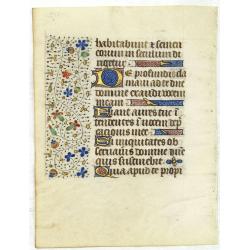 habitabunt et semen
eorum in seculum di
rigetur
De profundis cla
maui ad te dne
domine exaudi vocem
meam
Fiant aures tue i
tendentes in vocem dep
cationis mee
Si iniquitates ob
seruaueris domine dne
quis sustinebit
Quia apud te propi